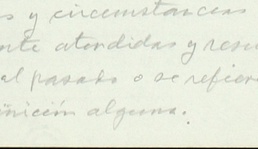 s y circemstancias
nte atendidas y resu
al pasado o se refier
inición alguna.